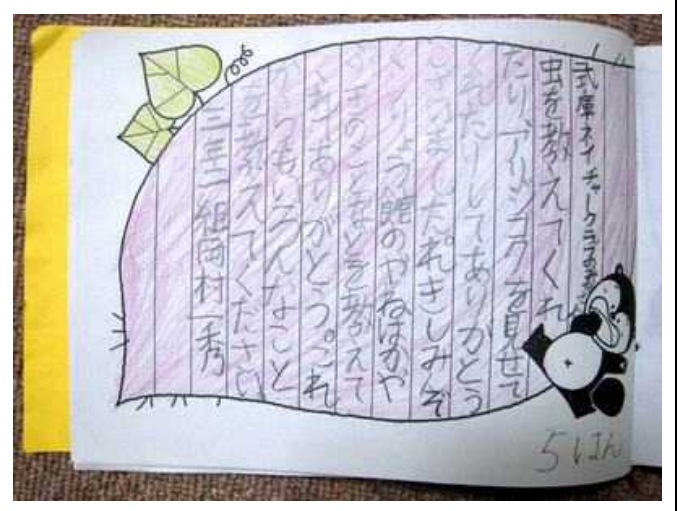 式庫ネイチャークラブのみなさん
虫を教えてくれ
たりアリジゴクを見せて
くれたりしてありがとう
ございました。れきしみんぞ
くしりょう館のやねはかや
ぶきのことなどを教えて
くれてありがとう。これ
からもいろんなこと
を教えてください
三年二組岡村一秀
5はん